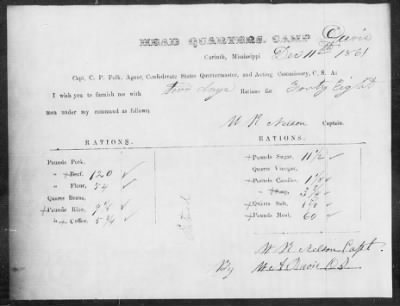 HEAD QUARTERS, CAMP Davis
Corinth, Mississippi Dec 11th 1861
Capt. C. P. Polk, Agent, Confederate States Quartermaster, and Acting Commissary, C. S. A:
I wish you to furnish me with Two days Rations for Forty Eight
men under my command as follows:
W R Nelson Captain.
RATIONS.
Pounds Pork,
" Beef, 120
" Flour, 54
Quarts Beans,
Pounds Rice,
" Coffee,
RATIONS.
Pounds Sugar, 11 1/2
Quarts Vinegar,
Pounds Candles,
" Soap,
Quarts Salt,
Pounds Meal, 60
W R Nelson Capt.
By W A Davis O.S.